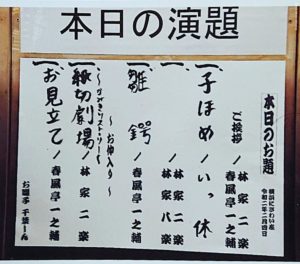 本日の演題
本日のお題
横浜にぎわい座
令和二年二月四日
ご挨拶ノ林家二楽
春風亭一之輔
一、子ほめノいっ休
一、ノ林家八楽
一、雛鍔ノ春風亭一之輔
～お仲入り～
一、紙切劇場ノ林家二楽
一、お見立てノ春風亭一之輔
お囃子